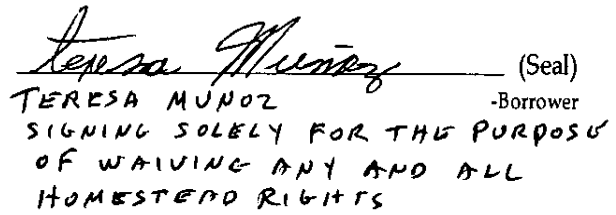 Teresa Muñoz (Seal)
TERESA MUNOZ -Borrower
SIGNING SOLELY FOR THE PURPOSE
OF WAIVING ANY AND ALL
HOMESTEAD RIGHTS